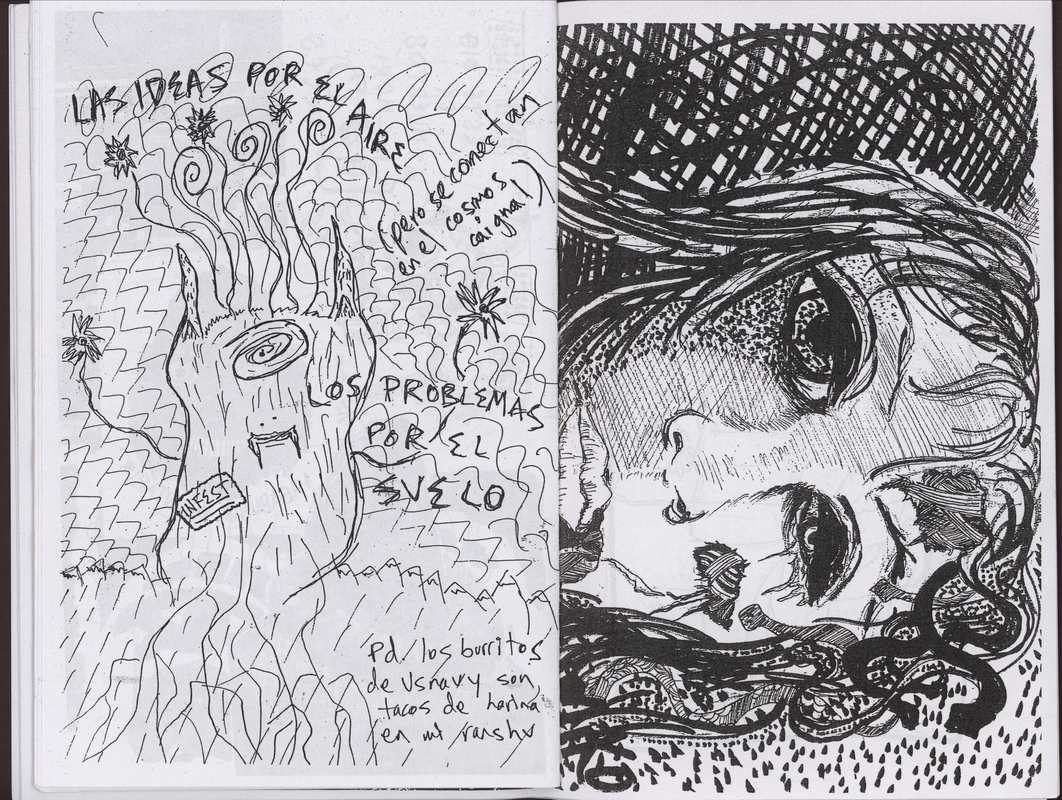 LAS IDEAS POR EL AIRE
(pero se conectan
en el cosmos
caignal)
LOS PROBLEMAS
POR EL
SVELO
INFEST
Pd/los burritos
de Usnavy son
tacos de harina
en mi